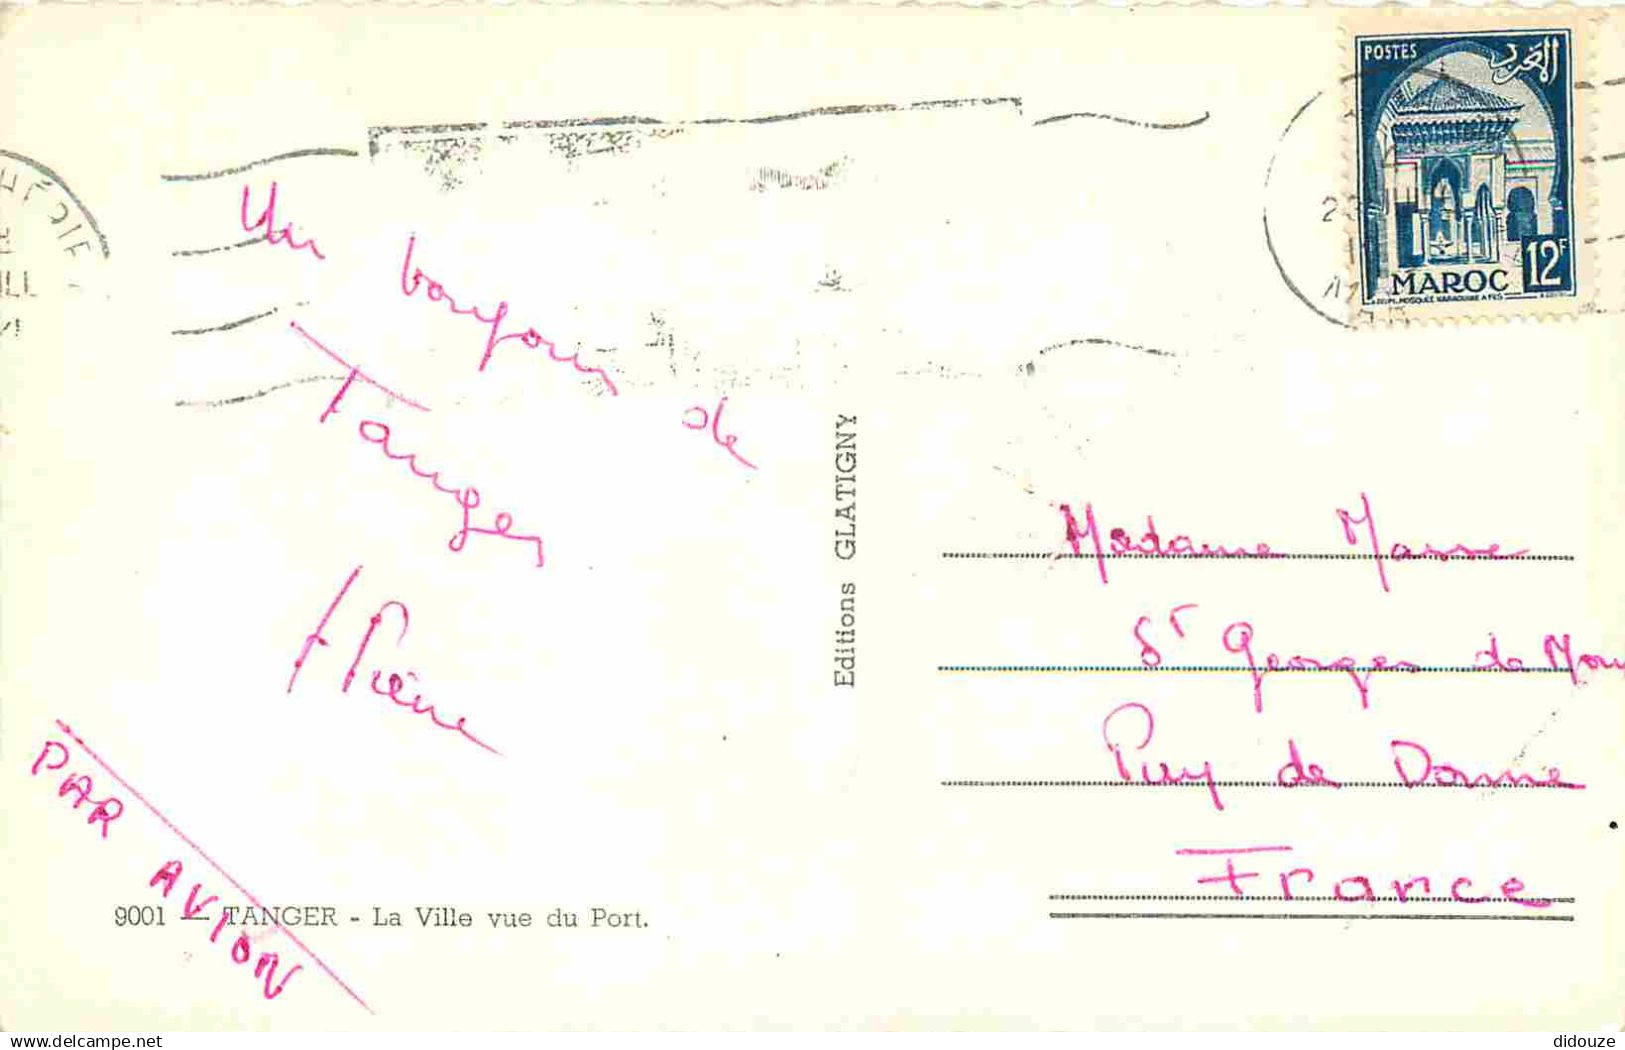 POSTES
المغرب
12F
MAROC
Un bonjour de
Tanger
Pierre
PAR AVION
9001 — TANGER - La Ville vue du Port.
Editions GLATIGNY
Madame Masse
St Georges de Mon
Puy de Dome
France
delcampe.net
didouze